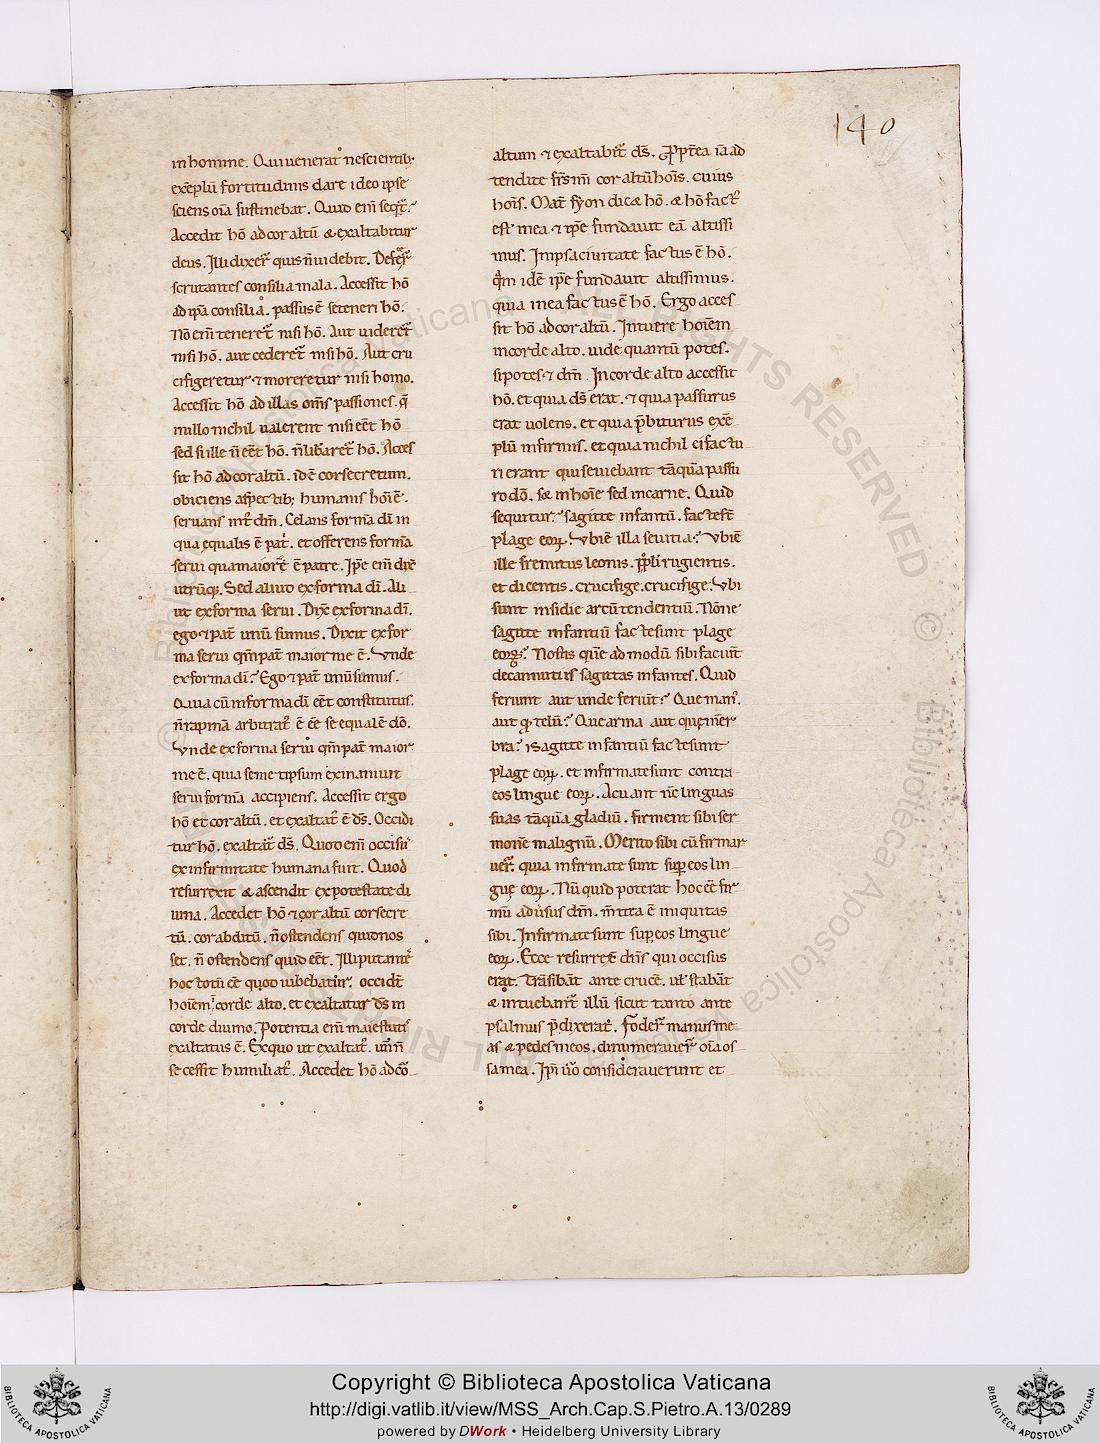 140
in homine. Qui uenerat nescientib;
exẽplũ fortitudinis dare ideo ipse
sciens oĩa sustinebat. Quid em̃ seqr̃?
Accedit hõ ad cor altũ & exaltabitur
deus. Illi dixer̃ quis ñ uidebit. Defeceř
scrutantes consilia mala. Accessit hõ
ad ip̃a consilia. passus ẽ se teneri hõ.
Nõ em̃ teneret̃ nisi hõ. Aut uideret̃
nisi hõ. aut cederet̃ nisi hõ. Aut cru
cifigeretur ⁊ moreretur nisi homo.
Accessit hõ ad illas om̃s passiones. q̃
nullo nichil ualerent nisi eẽt hõ
sed si ille ñ eẽt hõ. ñ liƀaret̃ hõ. Acces
sit hõ ad cor altũ. id ẽ cor secretum.
obiciens aspectib; humanis hoĩẽ.
seruans int̃ dm̃. Celans formã dĩ in
qua equalis ẽ pat̃. et offerens formã
serui qua maiore ẽ patre. Ip̃e em̃ dix̃
utrũq;. Sed aliud ex forma dĩ. Ali
ud ex forma serui. Dix̃ ex forma dĩ.
ego ⁊ pat̃ unũ sumus. Dixit ex for
ma serui qm̃ pat̃ maior me ẽ. Vnde
ex forma dĩ? Ego ⁊ pat̃ unũ sumus.
Quia cũ in forma dĩ eẽt constitutus.
ñ rapinã arbitrat̃ ẽ eẽ se equalẽ dõ.
Vnde ex forma serui qm̃ pat̃ maior
me ẽ. quia semetipsum exinaniuit
serui formã accipiens. Accessit ergo
hõ et cor altũ. et exaltat̃ ẽ ds̃. Occidi
tur hõ. exaltat̃ ds̃. Quod em̃ occisus̃
ex infirmitate humana fuit. Quod
resurrexit & ascendit ex potestate di
uina. Accedet hõ ⁊ cor altũ cor secre
tũ. cor abditũ. ñ ostendens quid nos
set. ñ ostendens quid eẽt. Illi putantẽ
hoc totũ eẽ quod uidebatur. occidt̃
hoĩem ĩ corde alto. et exaltatur ds̃ in
corde diuino. Potentia em̃ maiestatis
exaltatus ẽ. Ex quo ut exaltat̃.
secessit humiliat̃. Accedet hõ ad cõ
altum ⁊ exaltabit̃ ds̃. Ppt̃ea iã ad
tendite frs̃ mĩ cor altũ hoĩs. cuius
hoĩs. Mat̃ syon dic& hõ. & hõ factꝰ
est in ea ⁊ ip̃e fundauit eã altissi
mus. In ipsa ciuitate factus ẽ hõ.
qm̃ idẽ ip̃e fundauit altissimus.
quia in ea factus ẽ hõ. Ergo acces
sit hõ ad cor altũ. Intuere hoĩem
in corde alto. uide quantũ potes.
si potes ⁊ dm̃. In corde alto accessit
hõ. et quia ds̃ erat. ⁊ quia passurus
erat uolens. et quia p̃biturus exẽ
plũ infirmis. et quia nichil ei factu
ri erant qui seuiebant tãquã passu
ro dõ. s& in hoĩe sed in carne. Quid
sequitur? sagitte infantũ. facte sẽ
plage eoꝝ. Vbi ẽ illa seuitia? Vbi ẽ
ille fremitus leonis. ppl̃i rugientis.
et dicentis. crucifige. crucifige. Vbi
sunt insidie arcũ tendentiũ. Nõne
sagitte infantiũ facte sunt plage
eoꝝ? Nostis quẽ ad modũ sibi faciunt
de cannutiis sagittas infantes. Quid
feriunt aut unde feriũt? Que manꝰ.
aut qd̃ telũ? Que arma aut que mẽ
bra? Sagitte infantiũ facte sunt
plage eoꝝ. et infirmate sunt contra
eos lingue eoꝝ. Acuant nĩc linguas
suas tãquã gladiũ. firment sibi ser
monẽ malignũ. Merito sibi cũ firmar
uer̃. quia infirmate sunt sup̃ eos lin
gue eoꝝ. Nũ quid poterat hoc eẽ fir
mũ aduersus dm̃. m̃tita ẽ iniquitas
sibi. Infirmate sunt sup̃ eos lingue
eoꝝ. Ecce resurrex̃ dñs qui occisus
erat. Trãsibãt ante crucẽ. uł stabãt
& intuebant̃ illũ sicut tanto ante
psalmus p̃dixerat. Foder̃ manus me
as & pedes meos. dinumerauer̃ oĩa os
sa mea. Ip̃i ũo considerauerunt et
Copyright © Biblioteca Apostolica Vaticana
http://digi.vatlib.it/view/MSS_Arch.Cap.S.Pietro.A.13/0289
powered by DWork • Heidelberg University Library